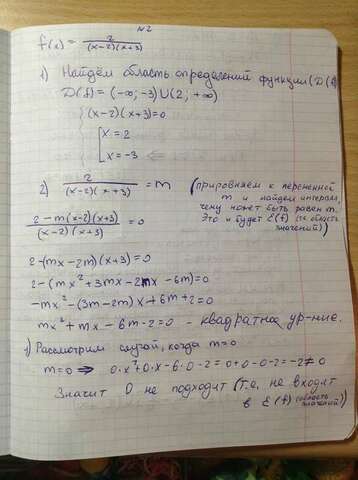 №2
f(x) = 2/((x-2)(x+3))
1) Найдём область определений функции (D(f))
D(f) = (-∞; -3) ∪ (2; +∞)
(x-2)(x+3)=0
x = 2
x = -3
2) 2/((x-2)(x+3)) = m (приравняем к переменной
m и найдём интервалы,
чему может быть равен m.
Это и будет E(f) (область
значений))
(2-m(x-2)(x+3))/((x-2)(x+3)) = 0
2-(mx-2m)(x+3)=0
2-(mx²+3mx-2mx-6m)=0
-mx²-(3m-2m)x+6m+2=0
mx²+mx-6m-2=0 - квадратное ур-ние.
1) Рассмотрим случай, когда m=0
m=0 ⇒ 0·x²+0·x-6·0-2=0+0-0-2=-2≠0
Значит 0 не подходит (т.е. не входит
в E(f) (область
значений))